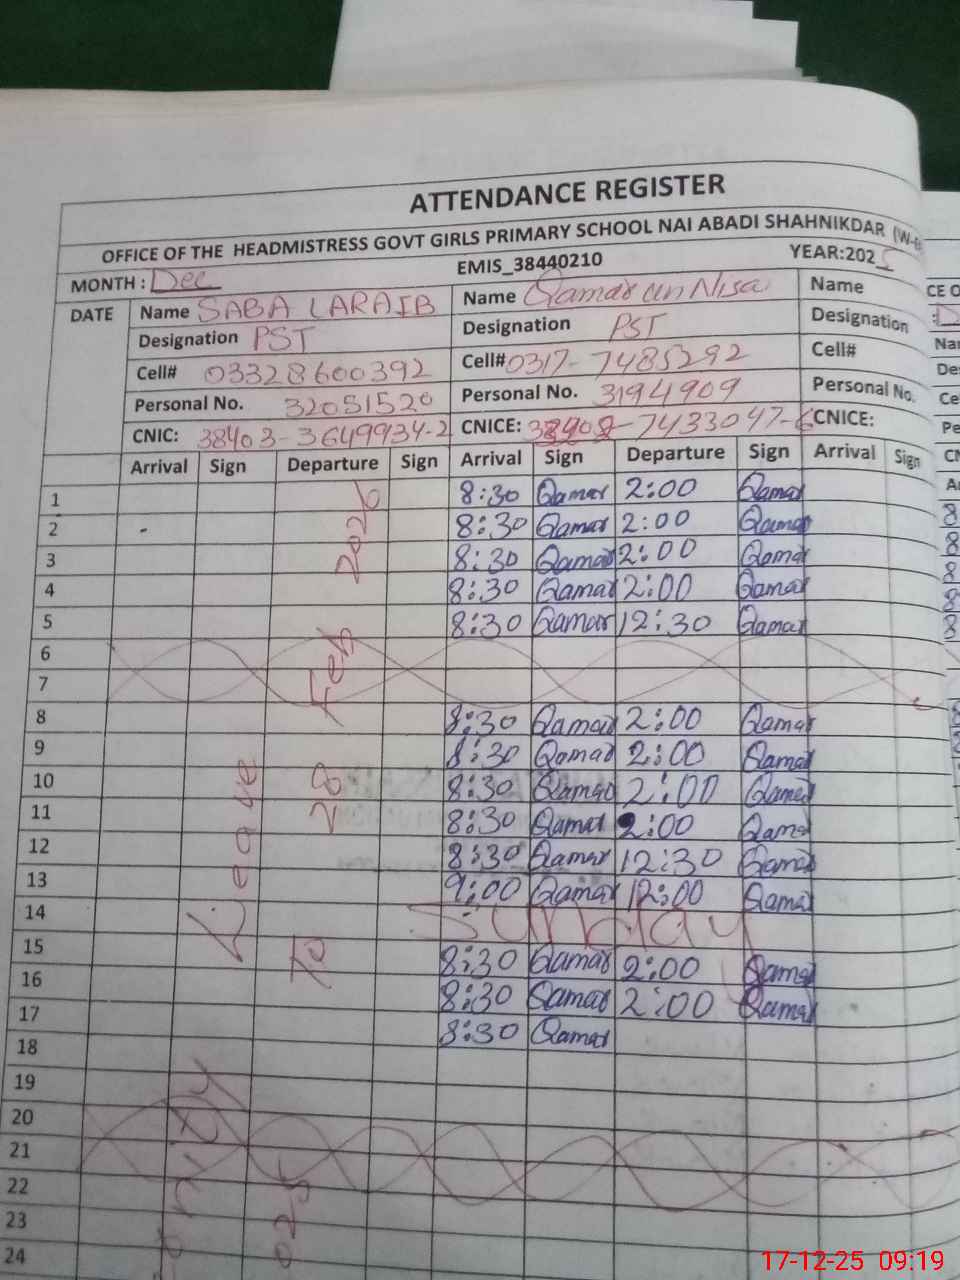 ATTENDANCE REGISTER
OFFICE OF THE HEADMISTRESS GOVT GIRLS PRIMARY SCHOOL NAI ABADI SHAHNIKDAR
MONTH : Dec EMIS_38440210 YEAR:2025
DATE Name SABA LARAIB Name Qamar un Nisa Name
Designation PST Designation PST Designation
Cell# 03328600392 Cell# 0317-7485292 Cell#
Personal No. 32051520 Personal No. 3194909 Personal No.
CNIC: 38403-3649934-2 CNICE: -7433047-6 CNICE:
Arrival Sign Departure Sign Arrival Sign Departure Sign Arrival Sign
1 8:30 Qamar 2:00 Qamar
2 - 8:30 Qamar 2:00 Qamar
3 8:30 Qamar 2:00 Qamar
4 8:30 Qamar 2:00 Qamar
5 8:30 Qamar 12:30 Qamar
6
7
8 8:30 Qamar 2:00 Qamar
9 8:30 Qamar 2:00 Qamar
10 8:30 Qamar 2:00 Qamar
11 8:30 Qamar 2:00 Qamar
12 8:30 Qamar 12:30 Qamar
13 9:00 Qamar 12:00 Qamar
14 Sunday
15 8:30 Qamar 2:00 Qamar
16 8:30 Qamar 2:00 Qamar
17 8:30 Qamar
18
19
20
21
22
23
24
Leave
To 28 Feb 2026
17-12-25 09:19